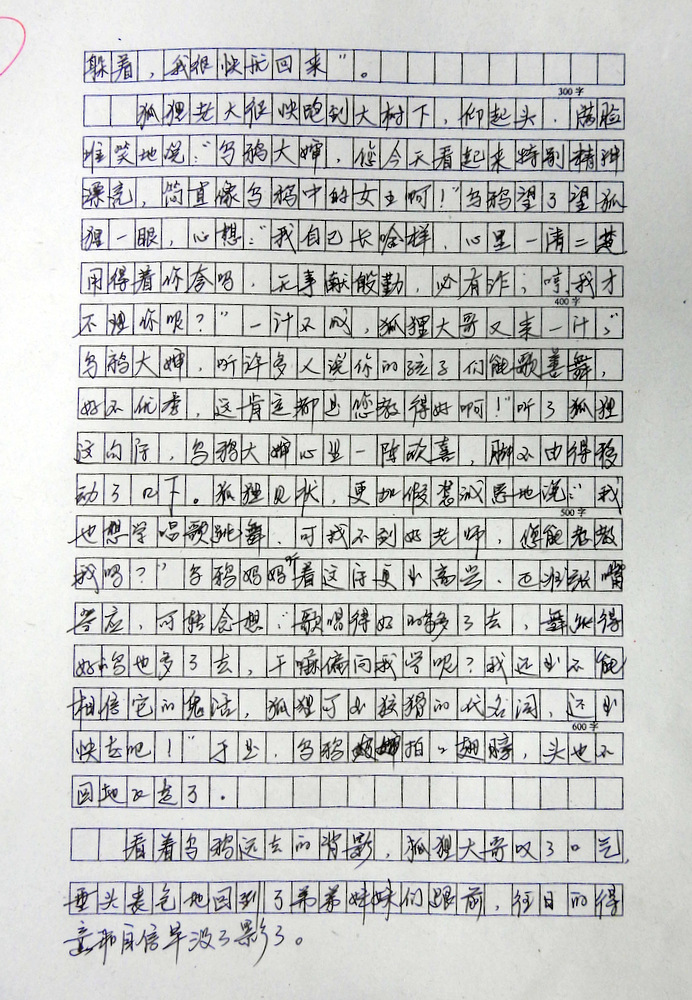 躲着，我很快就回来”。
300字
狐狸老大很快跑到大树下，仰起头，满脸
堆笑地说：“乌鸦大婶，您今天看起来特别精神
漂亮，简直像乌鸦中的女王啊！”乌鸦望了望狐
狸一眼，心想：“我自己长啥样，心里一清二楚
用得着你夸吗，无事献殷勤，必有诈；哼，我才
400字
不理你呢？”一计不成，狐狸大哥又来一计，“
乌鸦大婶，听许多人说你的孩子们能歌善舞，
好不优秀，这肯定都是您教得好啊！”听了狐狸
这句话，乌鸦大婶心里一阵欢喜，脚不由得移
动了口下。狐狸见状，更加假惺诚恳地说：“我
500字
也想学唱歌跳舞，可找不到好老师，您能教教
我吗？”乌鸦妈妈听着这话更是高兴，正准张嘴
答应，可转念想：“歌唱得好的多了去，舞跳得
好的鸟也多了去，干嘛偏向我学呢？我还是不能
相信它的鬼话，狐狸可是狡猾的代名词，还是
600字
快走吧！”于是，乌鸦拍拍翅膀，头也不
回地飞走了。
看着乌鸦远去的背影，狐狸大哥叹了口气，
垂头丧气地回到了弟弟妹妹们跟前，往日的得
意和自信早没了影了。